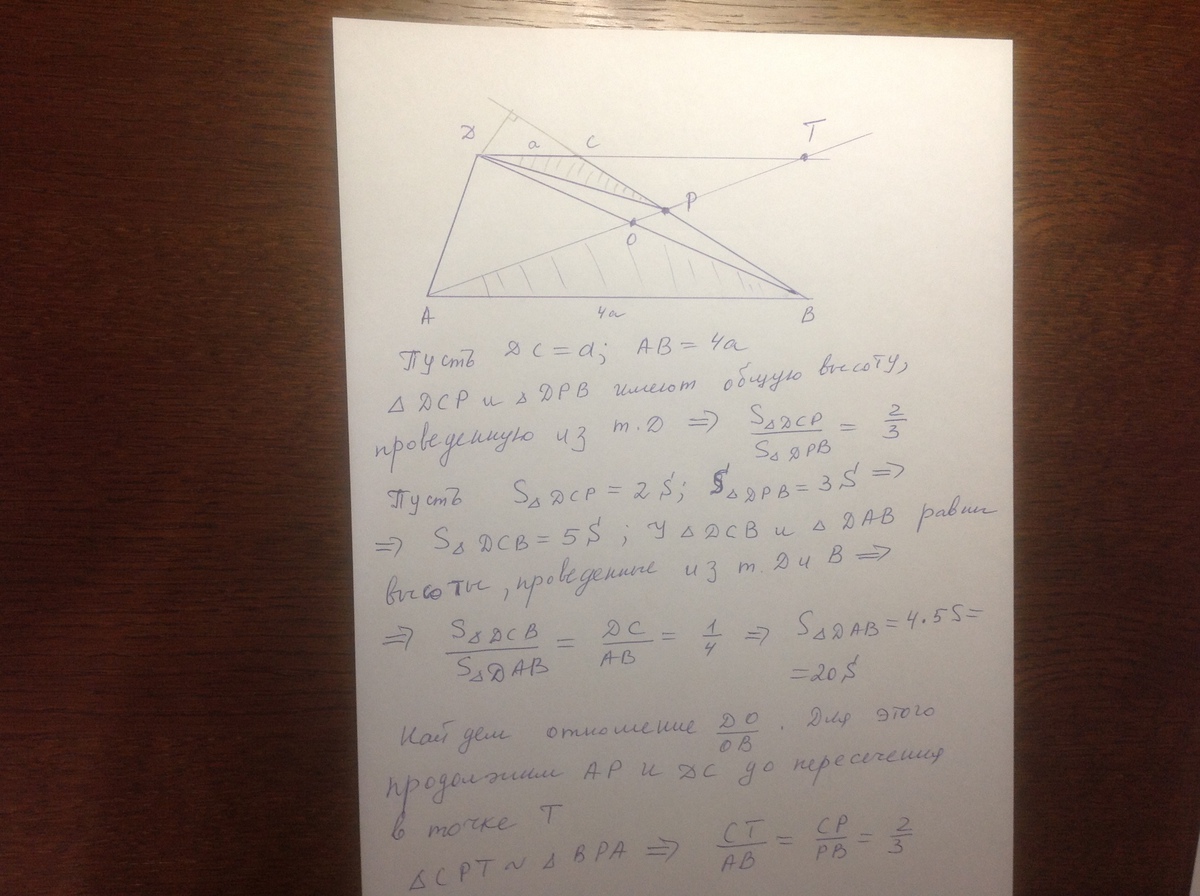 D
a
C
T
P
O
A
4a
B
Пусть DC = a; AB = 4a
△ DCP и △ DPB имеют общую высоту,
проведенную из т. D ⇒ S△DCP / S△DPB = 2/3
Пусть S△DCP = 2S; S△DPB = 3S ⇒
⇒ S△DCB = 5S; У △ DCB и △ DAB равны
высоты, проведенные из т. D и B ⇒
⇒ S△DCB / S△DAB = DC / AB = 1/4 ⇒ S△DAB = 4·5S =
= 20S
Найдем отношение DO / OB. Для этого
продолжим AP и DC до пересечения
в точке T
△ CPT ~ △ BPA ⇒ CT / AB = CP / PB = 2/3